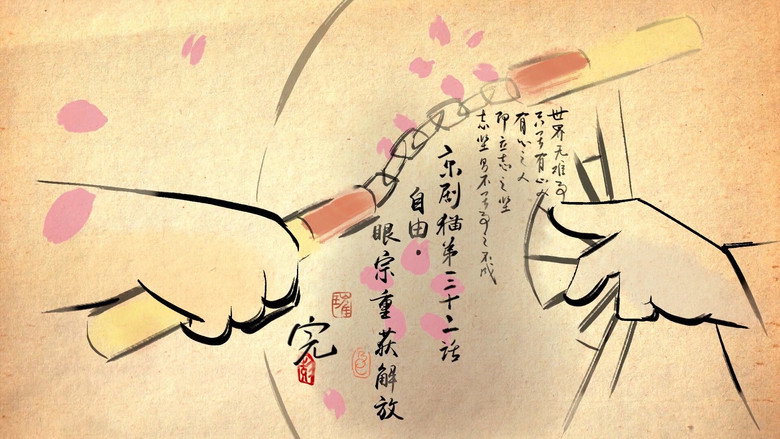 世界无难事
只畏有心人
有心之人
即立志之坚
志坚则不畏事之不成
京剧猫第三十二话
自由·
眼宗重获解放
完